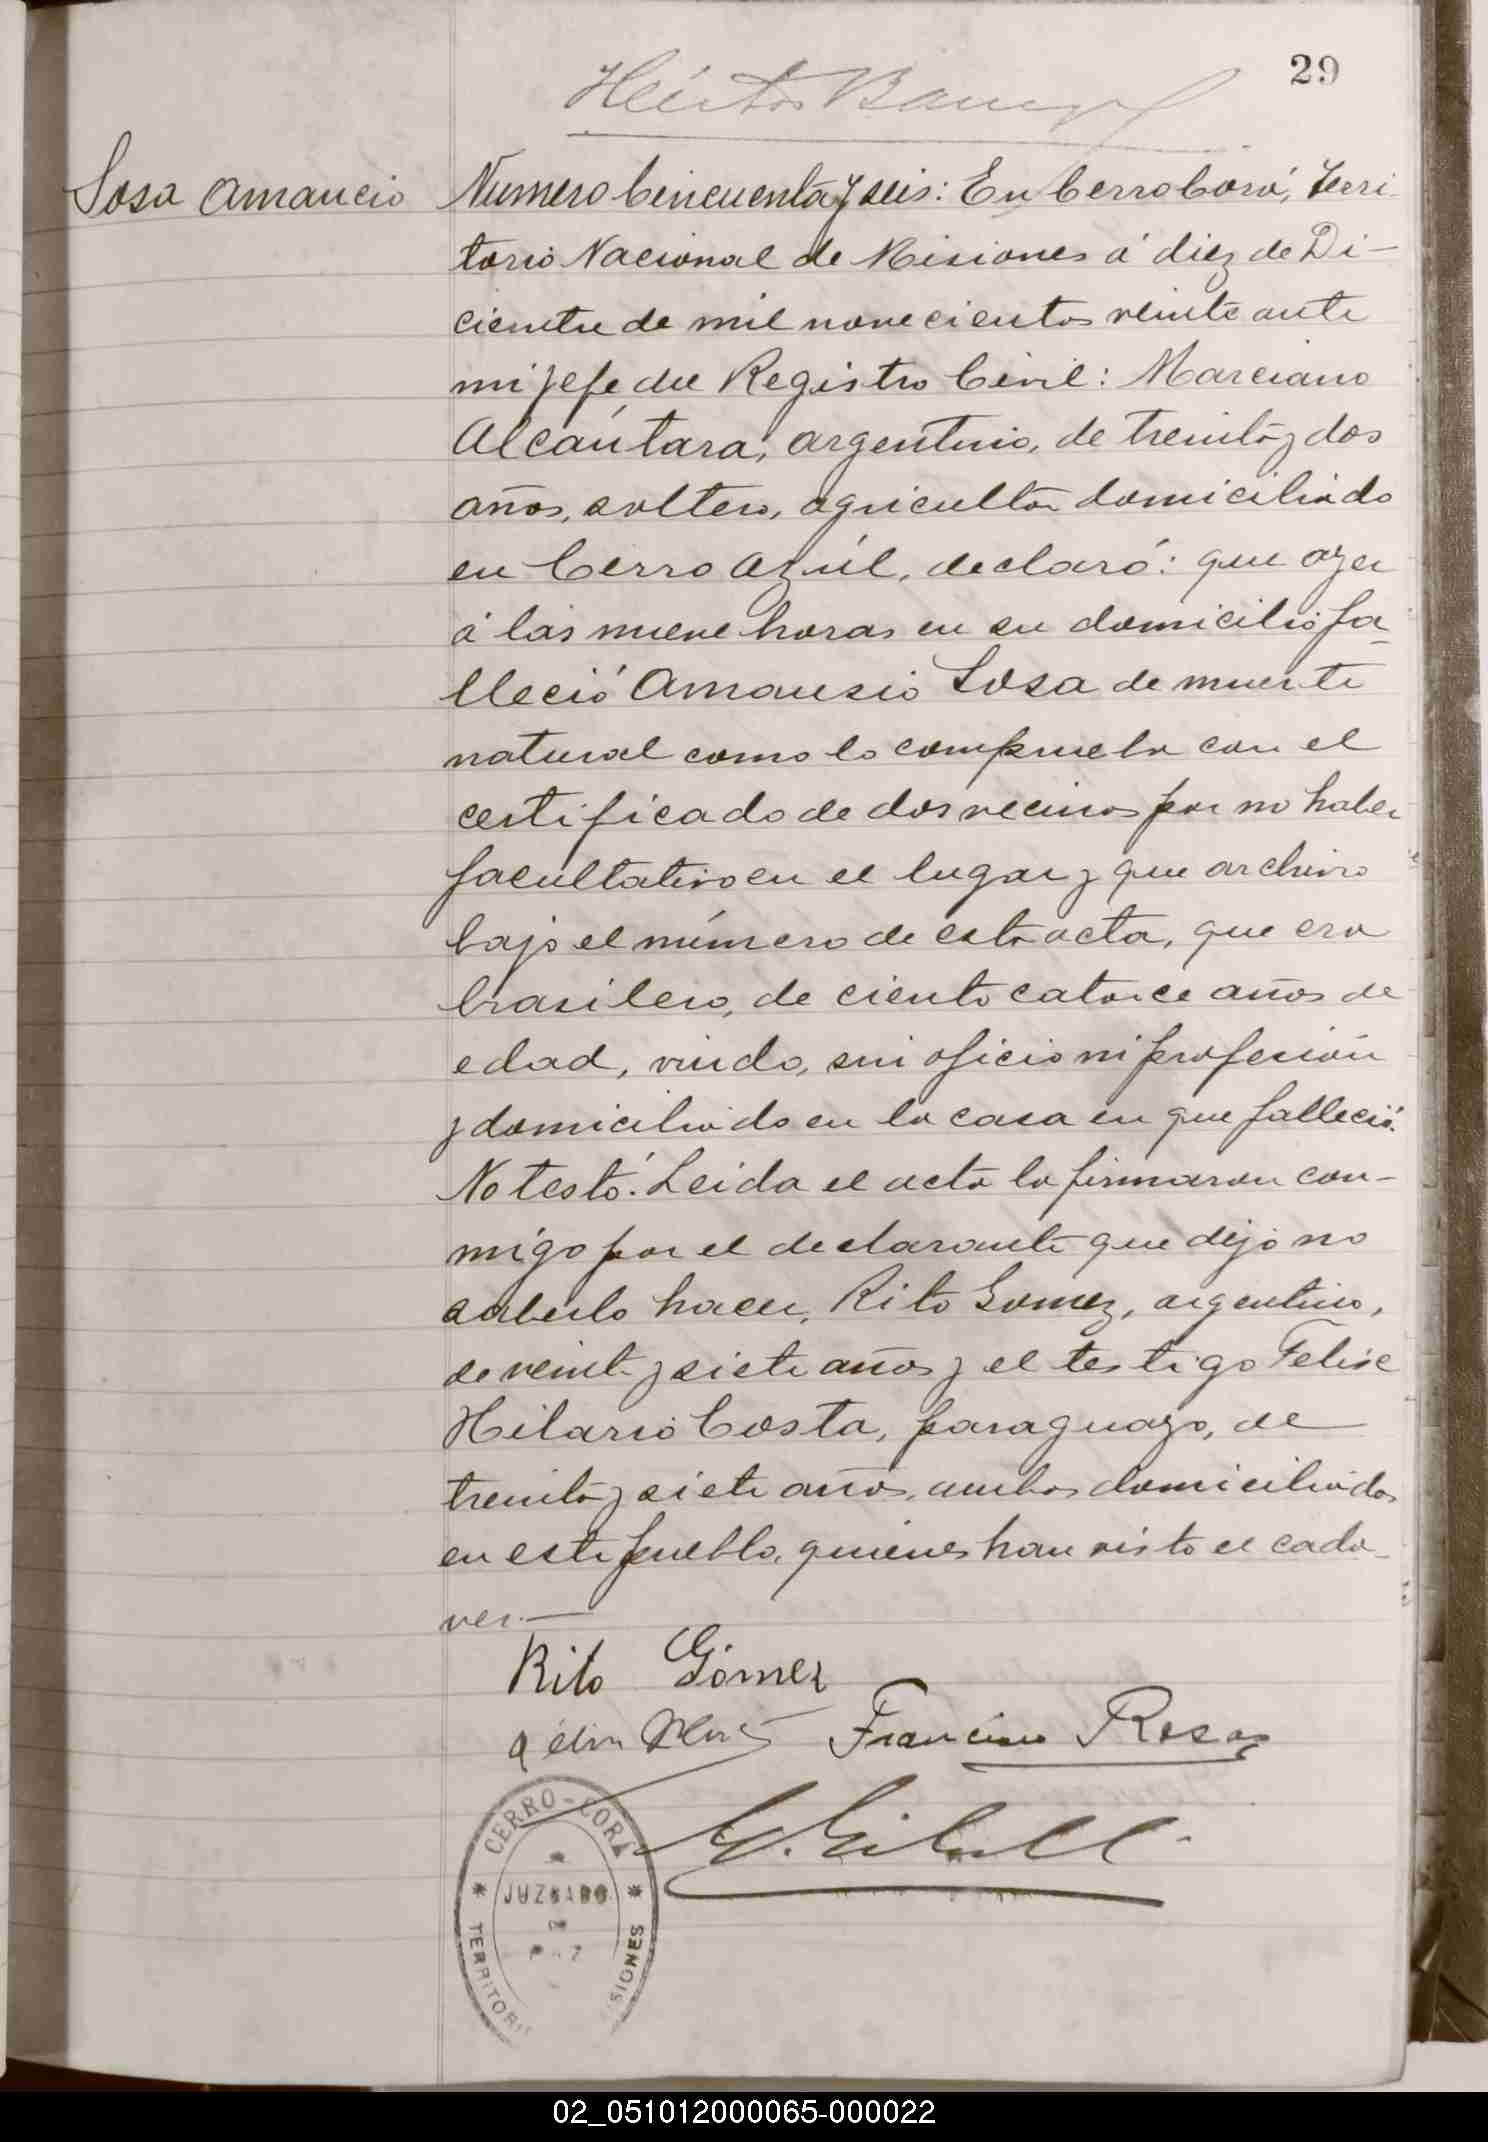 29
Héctor
Sosa Amancio
Numero Cincuenta y seis: En Cerro Corá, Terri-
torio Nacional de Misiones á diez de Di-
ciembre de mil novecientos veinte ante
mi Jefe del Registro Civil: Marciano
Alcántara, argentino, de treinta y dos
años, soltero, agricultor domiciliado
en Cerro Azúl, declaró: que ayer
á las nueve horas en su domicilio fa-
lleció Amansio Sosa de muerte
natural como lo comprueba con el
certificado de dos vecinos por no haber
facultativo en el lugar y que archivo
bajo el número de esta acta, que era
brasilero, de ciento catorce años de
edad, viudo, sin oficio ni profesión
y domiciliado en la casa en que falleció.
No testó. Leida el acta la firmaron con-
migo por el declarante que dijo no
saberlo hacer, Rito Gomez, argentino,
de veint y siete años y el testigo Felix
Hilario Costa, paraguayo, de
treinta y siete años, ambos domiciliados
en este pueblo, quienes han visto el cada-
ver.—
Rito Gómez
Francisco Rosas
CERRO-CORA
JUZGADO
TERRITORI
SIONES
02_051012000065-000022